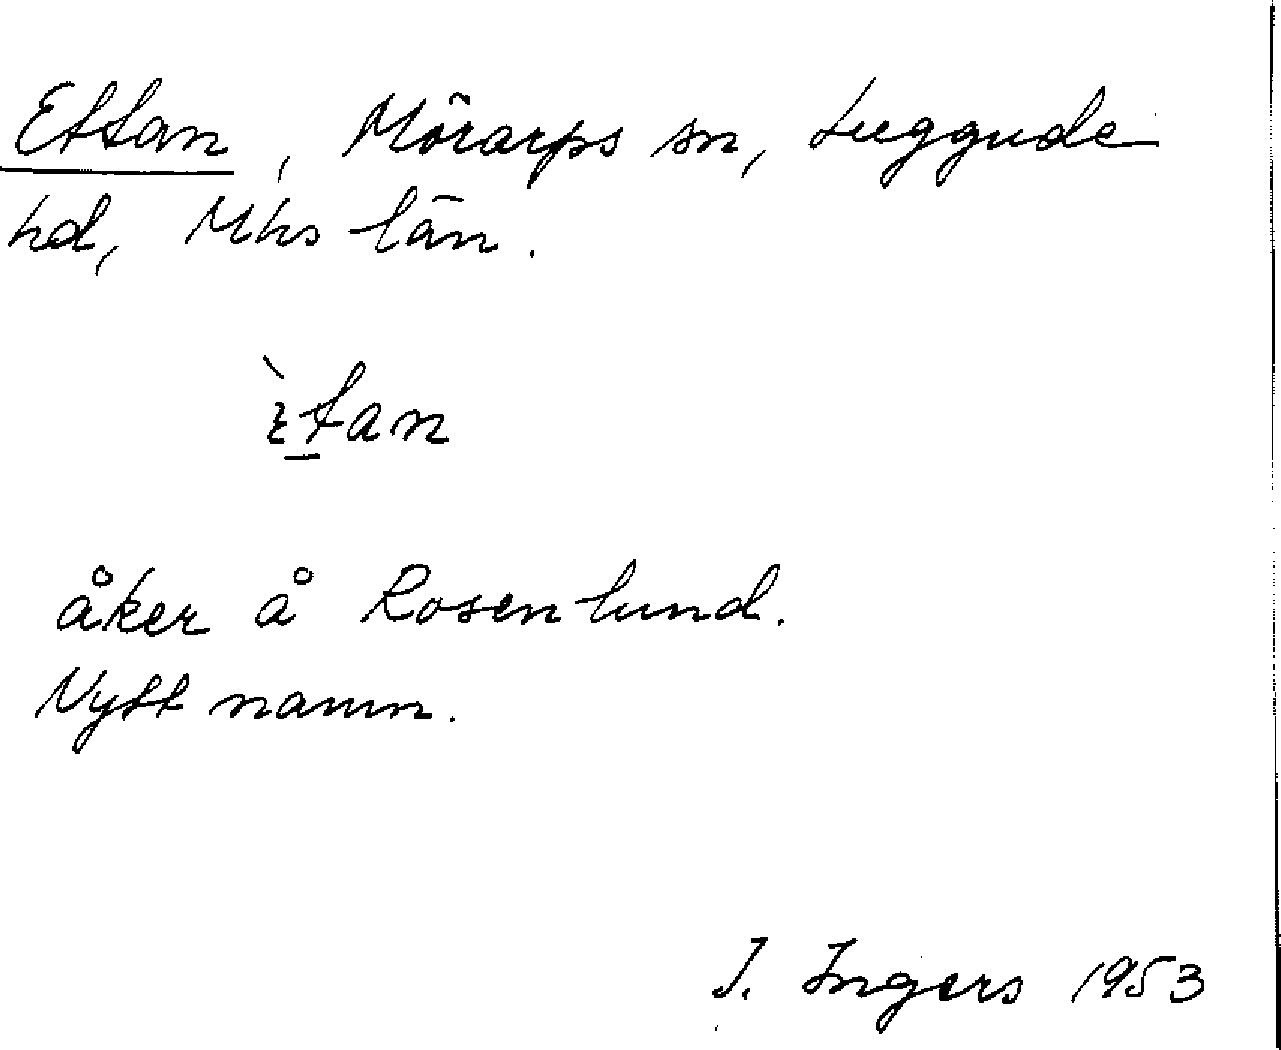 Ettan, Mörarps sn, Luggude
hd, Mhs län.
ɛ̀t̲an
åker å Rosenlund.
Nytt namn.
I. Ingers 1953